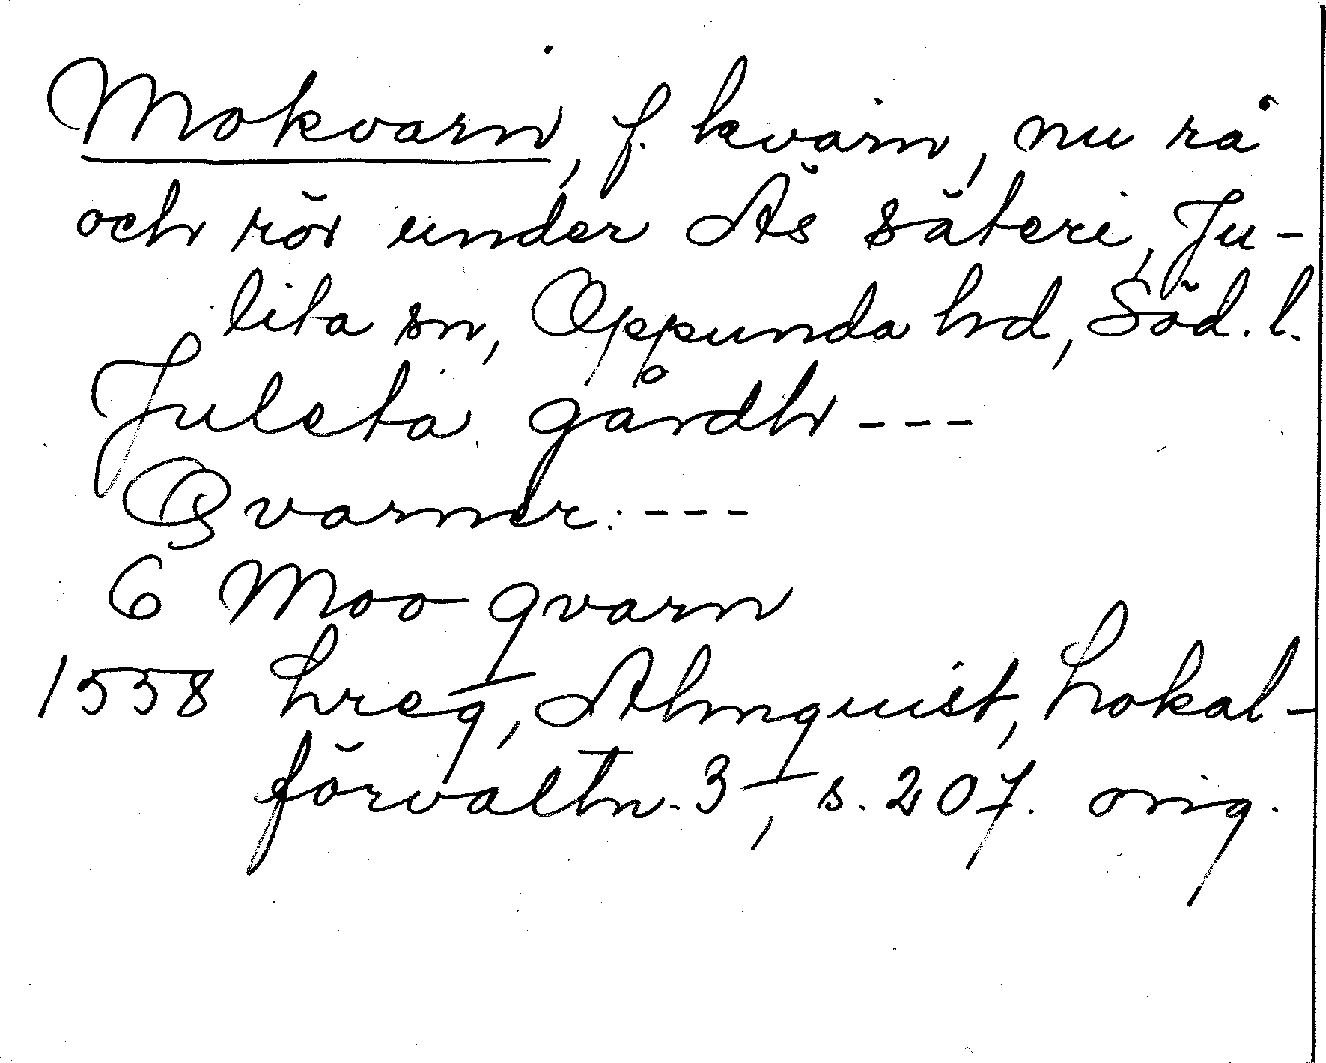 Mokvarn, f. kvarn, nu rå
och rör under Äs säteri, Ju-
lita sn, Oppunda hd, Söd. l.
Juleta gårdh ---
Qvarner: ---
6 Moo qvarn
1558 hreg, Almquist, Lokal-
förvaltn. 3, s. 207. orig.